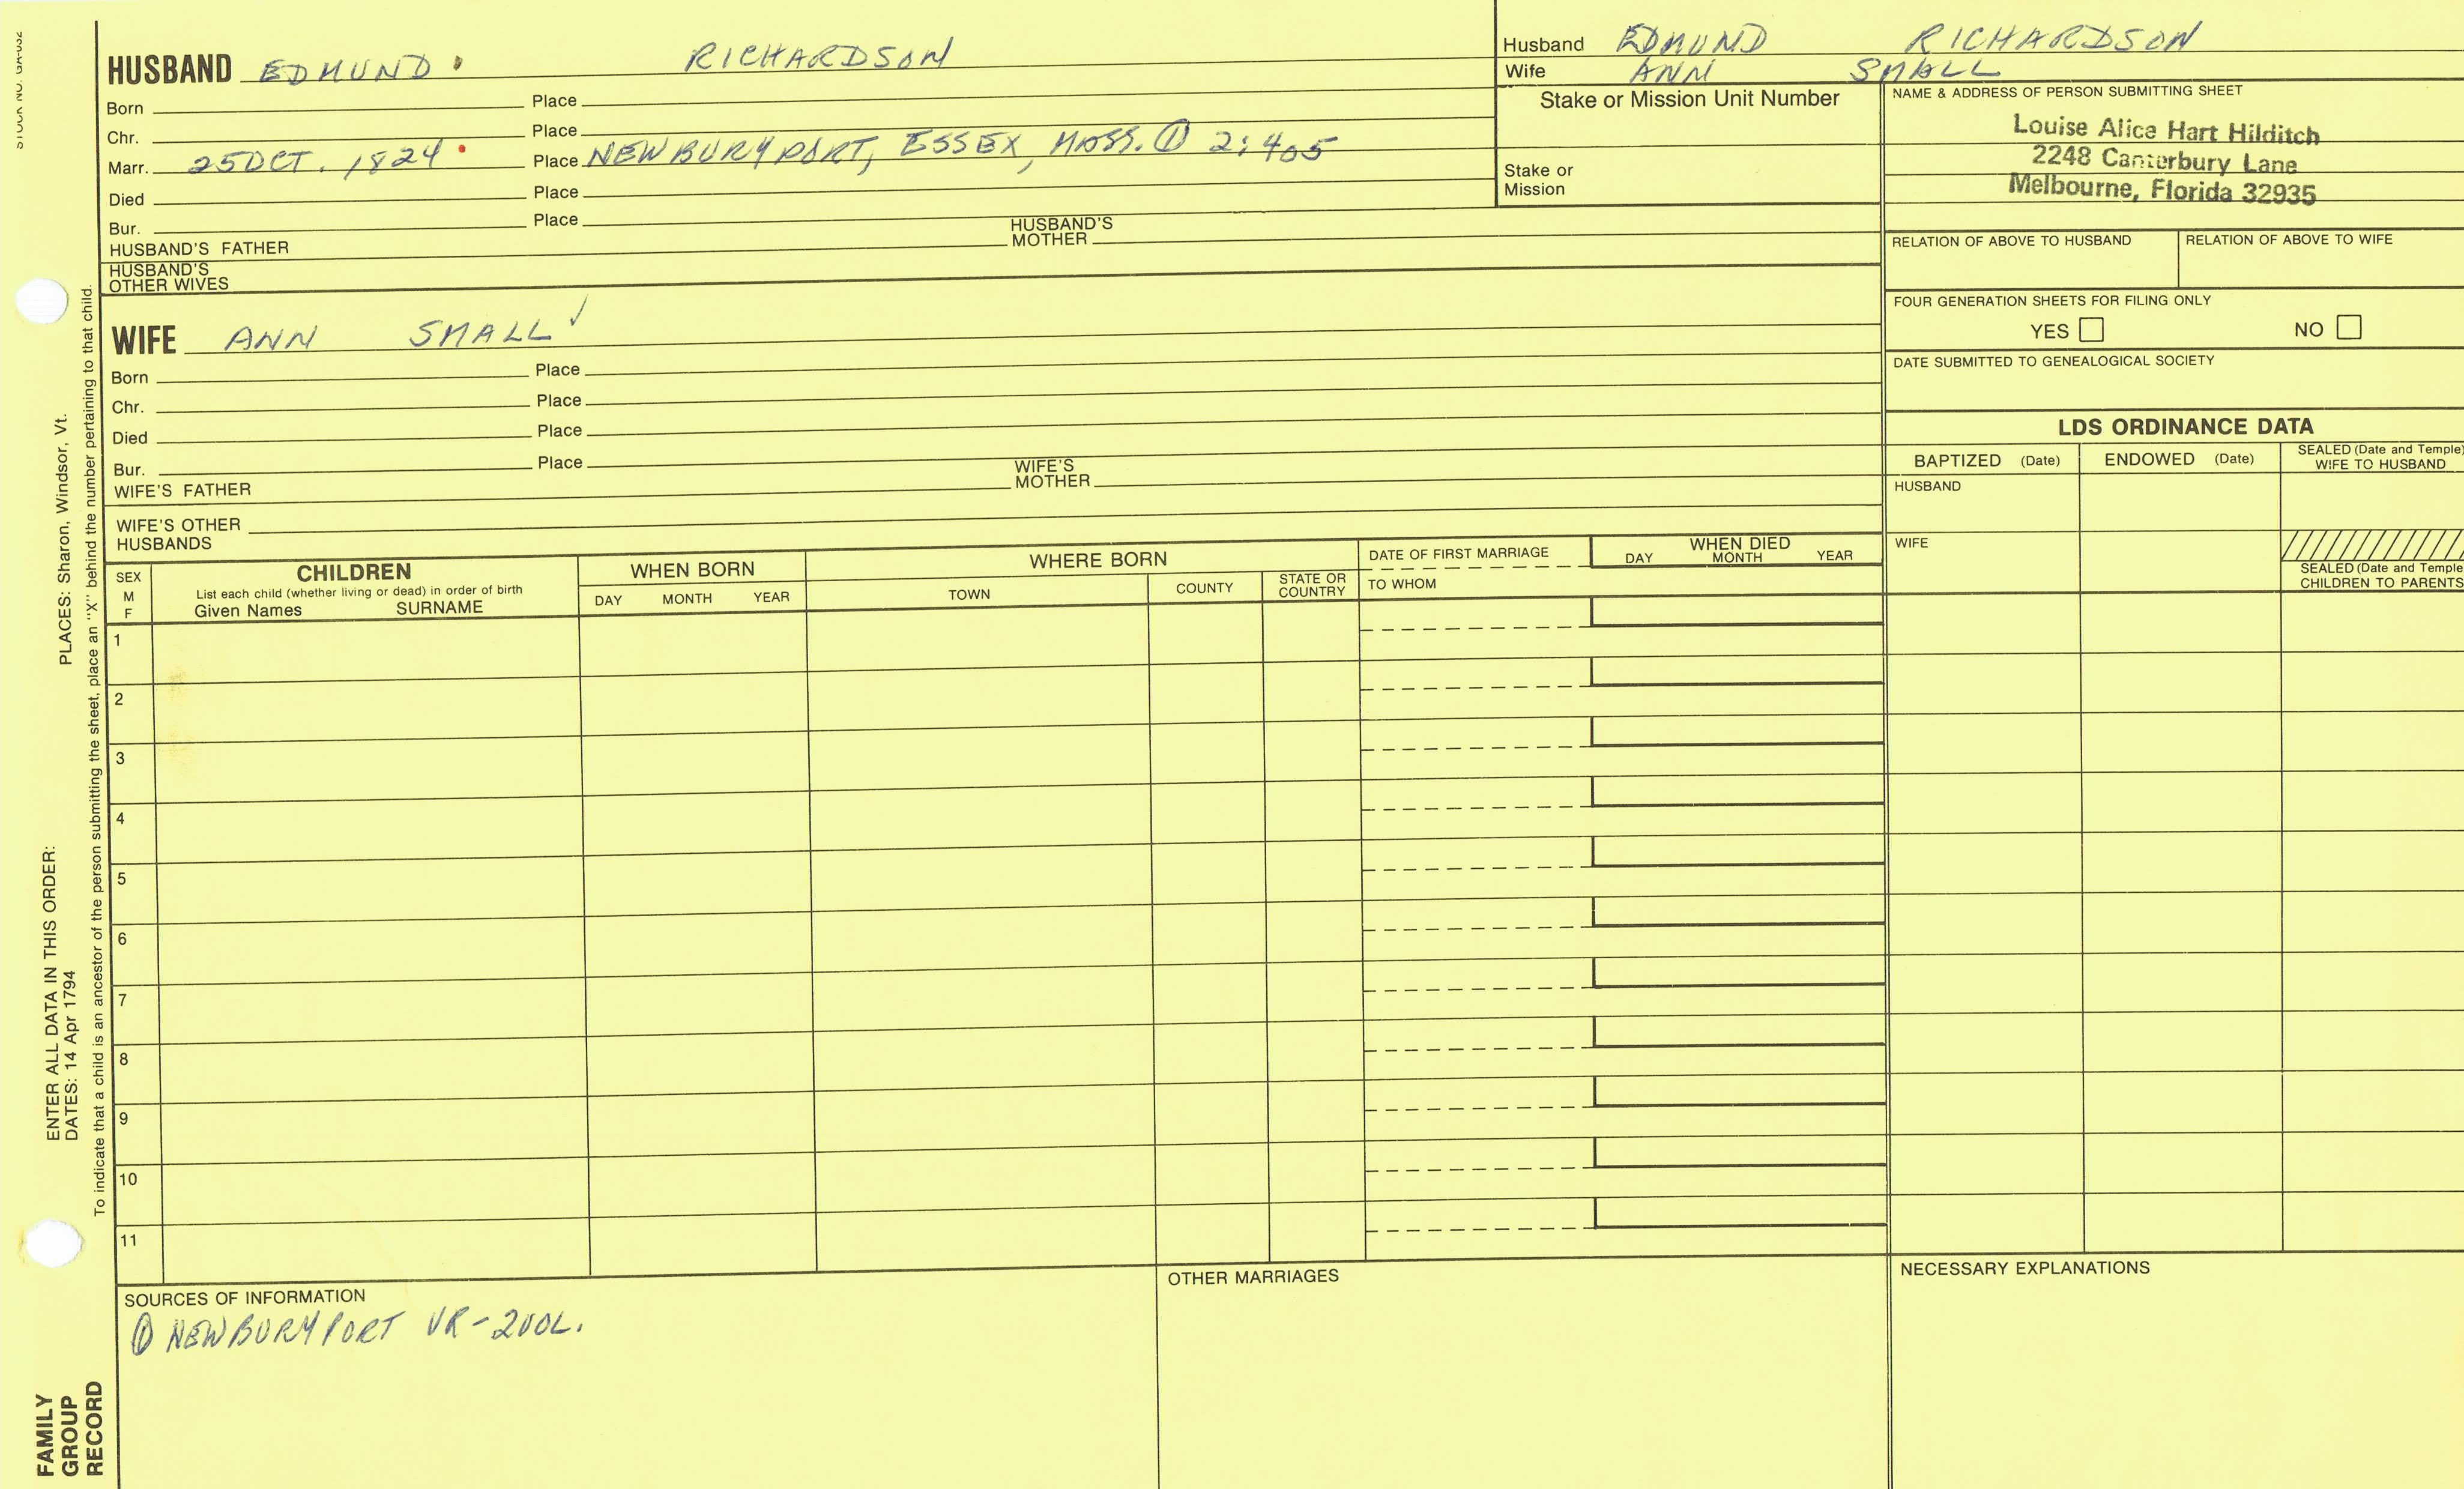 HUSBAND EDMUND RICHARDSON
Born Place
Chr. Place
Marr. 25 OCT. 1824 Place NEWBURYPORT, ESSEX, MASS. ① 2:405
Died Place
Bur. Place
HUSBAND'S FATHER HUSBAND'S MOTHER
HUSBAND'S
OTHER WIVES
WIFE ANN SMALL ✓
Born Place
Chr. Place
Died Place
Bur. Place
WIFE'S FATHER WIFE'S MOTHER
WIFE'S OTHER
HUSBANDS
Husband EDMUND RICHARDSON
Wife ANN SMALL
Stake or Mission Unit Number
Stake or
Mission
NAME & ADDRESS OF PERSON SUBMITTING SHEET
Louise Alice Hart Hilditch
2248 Canterbury Lane
Melbourne, Florida 32935
RELATION OF ABOVE TO HUSBAND
RELATION OF ABOVE TO WIFE
FOUR GENERATION SHEETS FOR FILING ONLY
YES NO
DATE SUBMITTED TO GENEALOGICAL SOCIETY
LDS ORDINANCE DATA
BAPTIZED (Date) ENDOWED (Date) SEALED (Date and Temple)
WIFE TO HUSBAND
HUSBAND
WIFE
SEALED (Date and Temple
CHILDREN TO PARENTS
SEX
M
F
CHILDREN
List each child (whether living or dead) in order of birth
Given Names SURNAME
WHEN BORN
DAY MONTH YEAR
WHERE BORN
TOWN COUNTY STATE OR COUNTRY
DATE OF FIRST MARRIAGE
TO WHOM
WHEN DIED
DAY MONTH YEAR
1
2
3
4
5
6
7
8
9
10
11
SOURCES OF INFORMATION
① NEWBURYPORT VR-2VOL.
OTHER MARRIAGES
NECESSARY EXPLANATIONS
STOCK NO. GA-032
PLACES: Sharon, Windsor, Vt.
ENTER ALL DATA IN THIS ORDER:
DATES: 14 Apr 1794
To indicate that a child is an ancestor of the person submitting the sheet, place an "X" behind the number pertaining to that child.
FAMILY
GROUP
RECORD